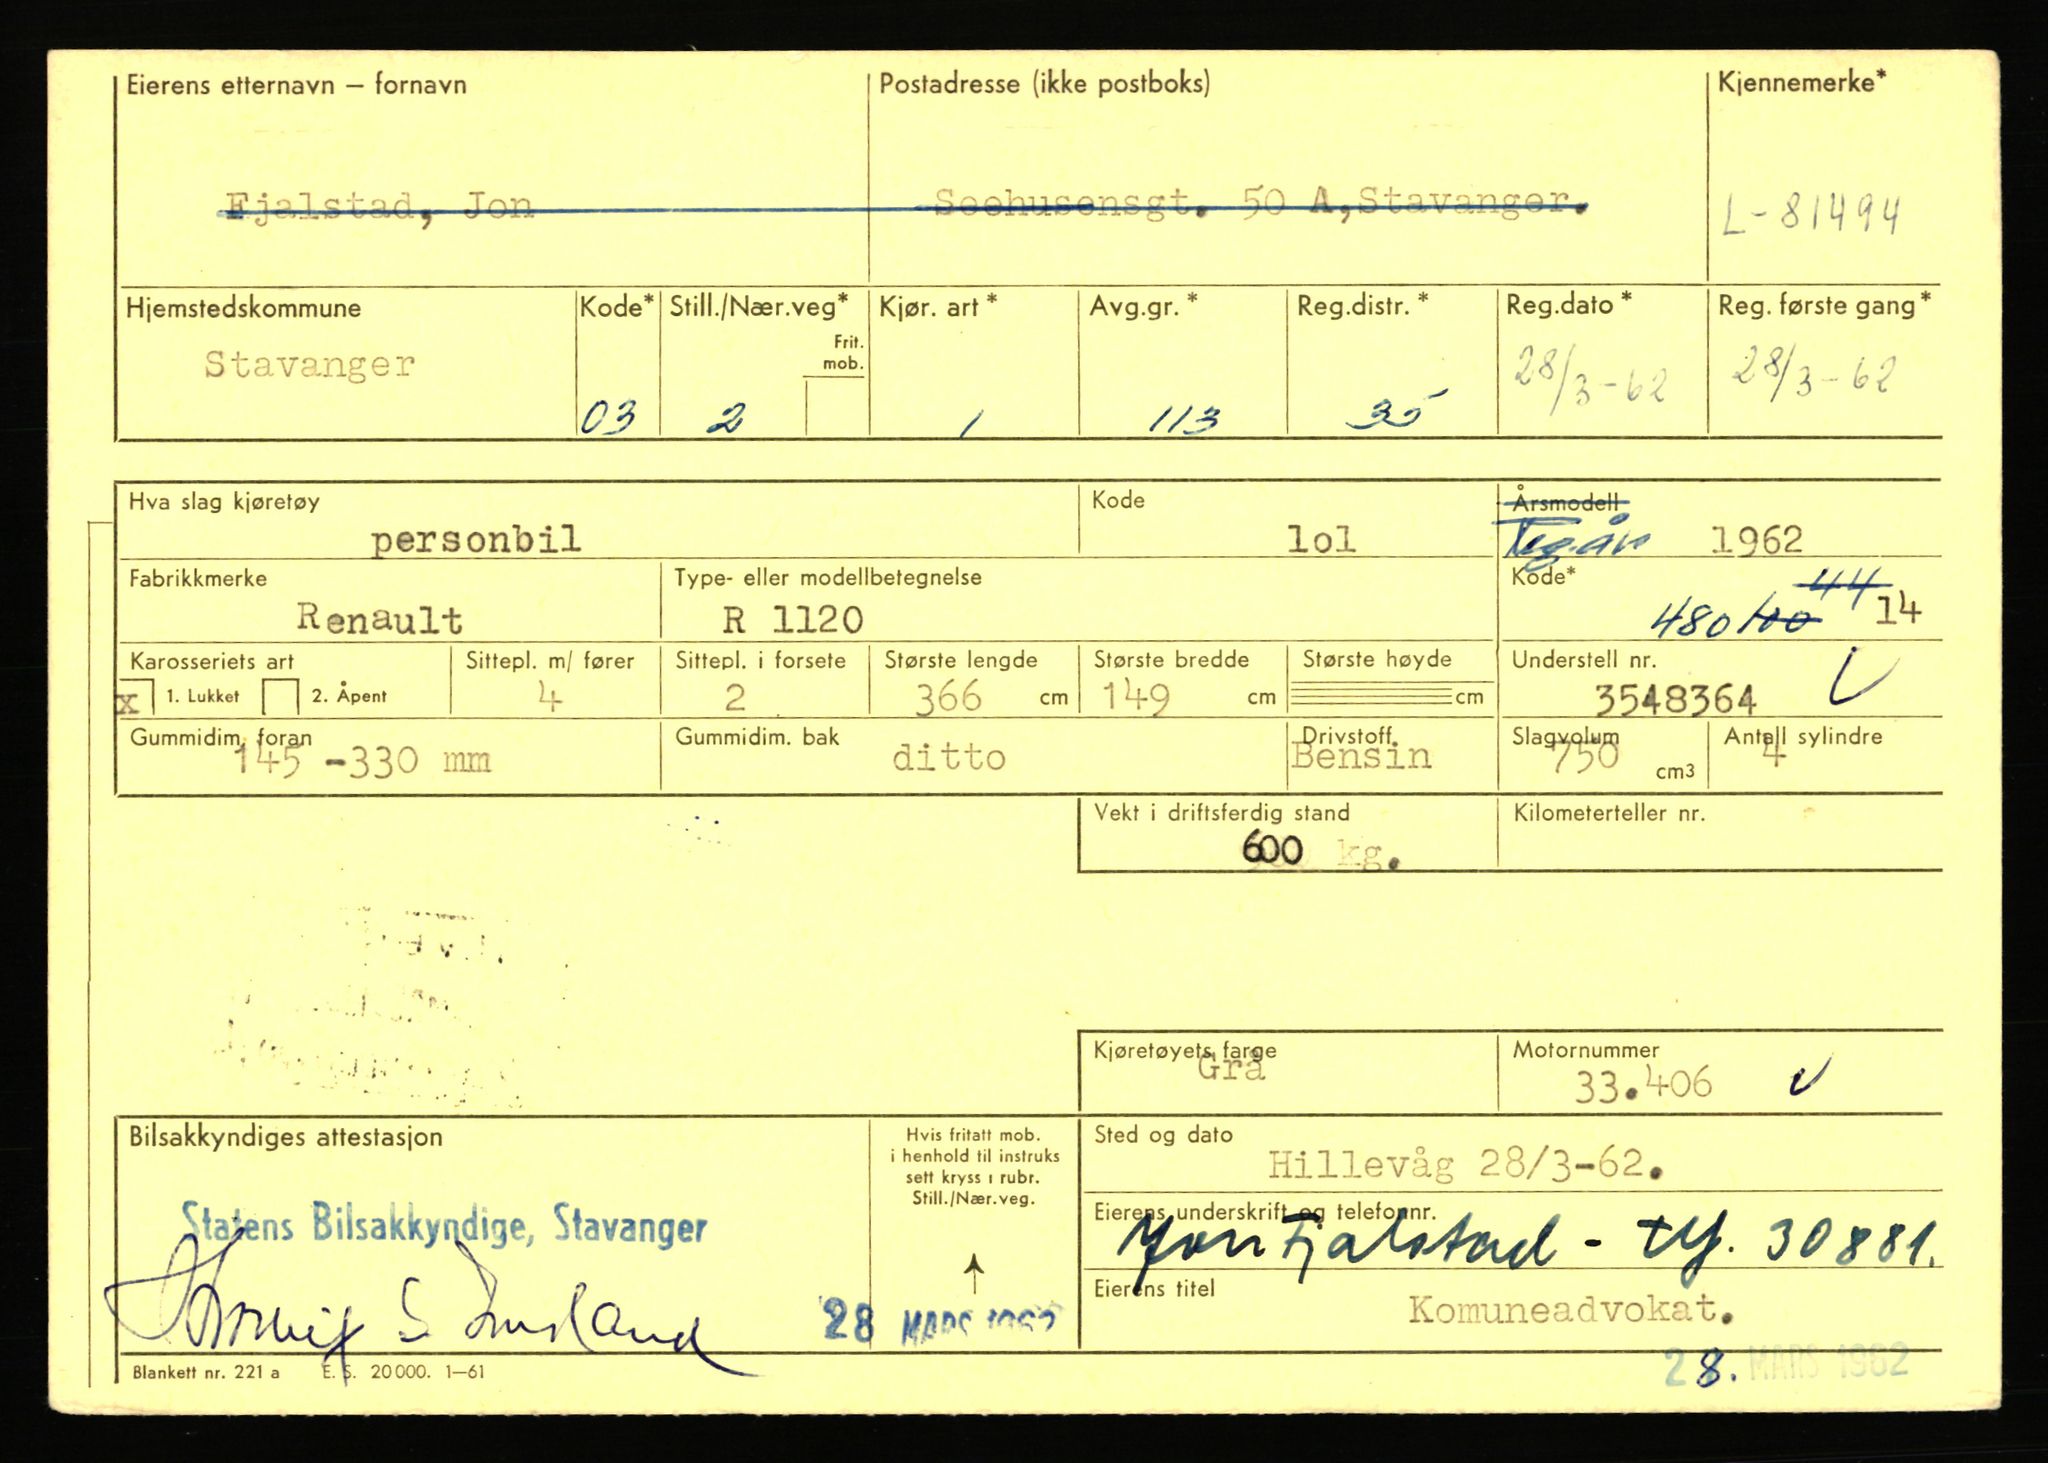 Eierens etternavn – fornavn Postadresse (ikke postboks) Kjennemerke*
Fjalstad, Jon Seehusensgt. 50 A, Stavanger. L-81494
Hjemstedskommune Kode* Still./Nær.veg* Kjør. art* Avg.gr.* Reg.distr.* Reg.dato* Reg. første gang*
Frit.
mob.
Stavanger 28/3-62 28/3-62
03 2 1 113 35
Hva slag kjøretøy Kode Årsmodell
personbil lol Reg.år 1962
Fabrikkmerke Type- eller modellbetegnelse Kode* 44
Renault R 1120 480 100 14
Karosseriets art Sittepl. m/ fører Sittepl. i forsete Største lengde Største bredde Største høyde Understell nr.
x 1. Lukket 2. Åpent 4 2 366 cm 149 cm cm 3548364
Gummidim. foran Gummidim. bak Drivstoff Slagvolum Antall sylindre
145 -330 mm ditto Bensin 750 cm3 4
Vekt i driftsferdig stand Kilometerteller nr.
600 kg.
Kjøretøyets farge Motornummer
Grå 33.406
Bilsakkyndiges attestasjon Hvis fritatt mob. Sted og dato
i henhold til instruks
sett kryss i rubr.
Still./Nær.veg.
Hillevåg 28/3-62.
Statens Bilsakkyndige, Stavanger
Eierens underskrift og telefonnr.
Jon Fjalstad - tlf. 30881.
Eierens titel
28 MARS 1962 Komuneadvokat.
Blankett nr. 221 a E. S. 20000. 1–61
28. MARS 1962